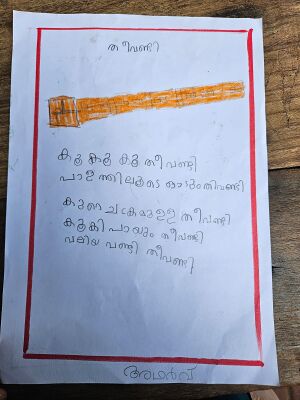 തീവണ്ടി
കൂ കൂ കൂ തീവണ്ടി
പാളത്തിലൂടെ ഓടും തീവണ്ടി
കുറെ ചക്രമുള്ള തീവണ്ടി
കൂകി പായും തീവണ്ടി
വലിയ വണ്ടി തീവണ്ടി
അഥർവ്